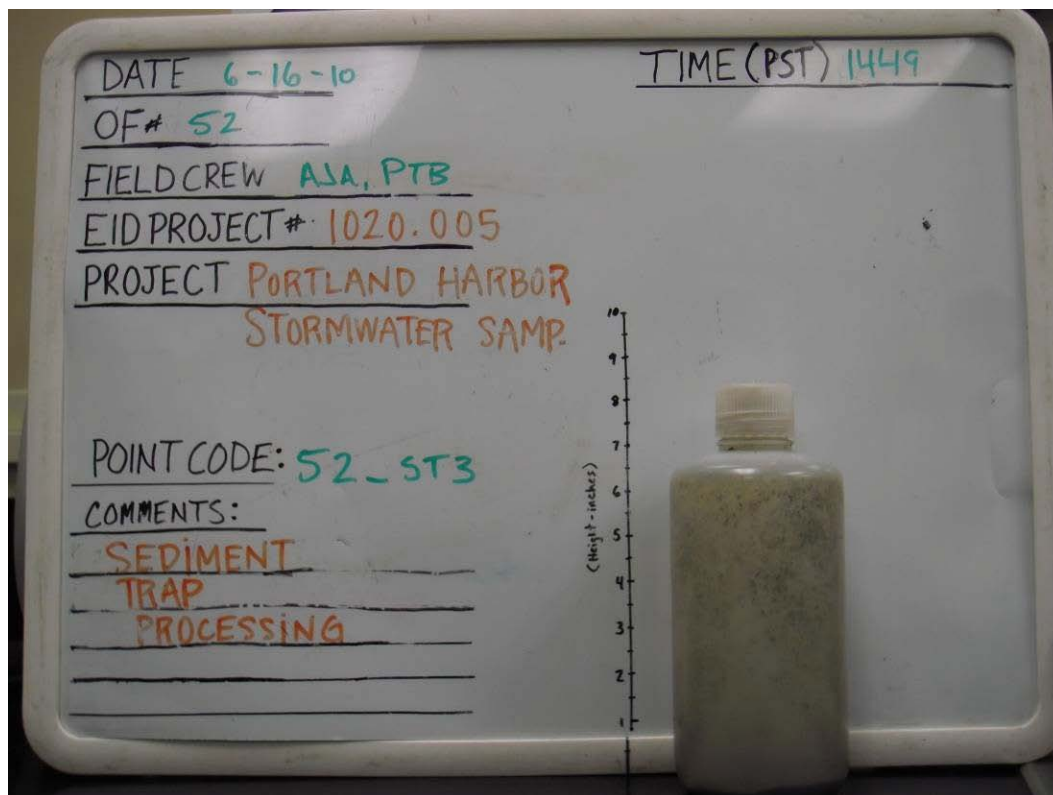 DATE 6-16-10
TIME (PST) 1449
OF# 52
FIELD CREW AJA, PTB
EID PROJECT # 1020.005
PROJECT PORTLAND HARBOR
STORMWATER SAMP.
POINT CODE: 52_ST3
COMMENTS:
SEDIMENT
TRAP
PROCESSING
10
9
8
7
6
5
4
3
2
1
(Height-inches)